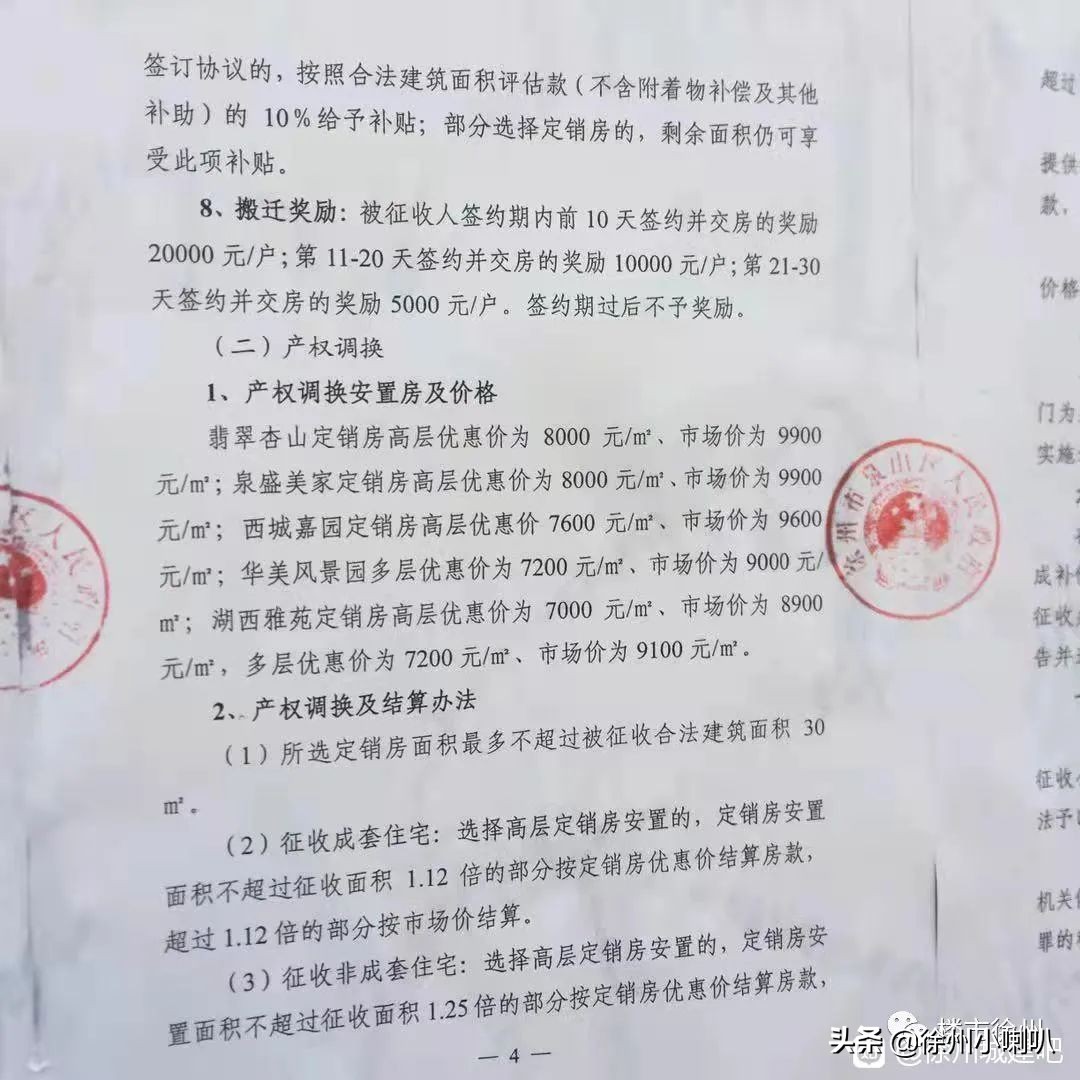 签订协议的，按照合法建筑面积评估款（不含附着物补偿及其他
补助）的 10%给予补贴；部分选择定销房的，剩余面积仍可享
受此项补贴。
8、搬迁奖励：被征收人签约期内前 10 天签约并交房的奖励
20000 元/户；第 11-20 天签约并交房的奖励 10000 元/户；第 21-30
天签约并交房的奖励 5000 元/户。签约期过后不予奖励。
（二）产权调换
1、产权调换安置房及价格
翡翠杏山定销房高层优惠价为 8000 元/㎡、市场价为 9900
元/㎡；泉盛美家定销房高层优惠价为 8000 元/㎡、市场价为 9900
元/㎡；西城嘉园定销房高层优惠价 7600 元/㎡、市场价为 9600
元/㎡；华美风景园多层优惠价为 7200 元/㎡、市场价为 9000 元/
㎡；湖西雅苑定销房高层优惠价为 7000 元/㎡、市场价为 8900
元/㎡，多层优惠价为 7200 元/㎡、市场价为 9100 元/㎡。
2、产权调换及结算办法
（1）所选定销房面积最多不超过被征收合法建筑面积 30
㎡。
（2）征收成套住宅：选择高层定销房安置的，定销房安置
面积不超过征收面积 1.12 倍的部分按定销房优惠价结算房款，
超过 1.12 倍的部分按市场价结算。
（3）征收非成套住宅：选择高层定销房安置的，定销房安
置面积不超过征收面积 1.25 倍的部分按定销房优惠价结算房款，
— 4 —
区人民政府
徐州市泉山区人民政府
超过
提供
款，
价格
门为
实施
成补偿
征收
告并
征收
法予以
机关
罪的
楼市徐州
头条 @徐州小喇叭
@徐州城建吧